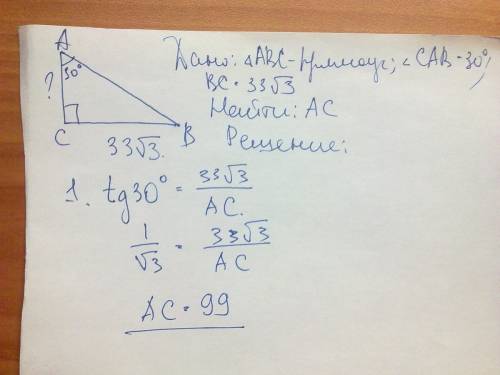 A
30°
?
C
B
33√3.
Дано: △ABC-прямоуг; ∠CAB=30°,
BC=33√3
Найти: AC
Решение:
1. tg30° = 33√3 / AC.
1 / √3 = 33√3 / AC
AC = 99